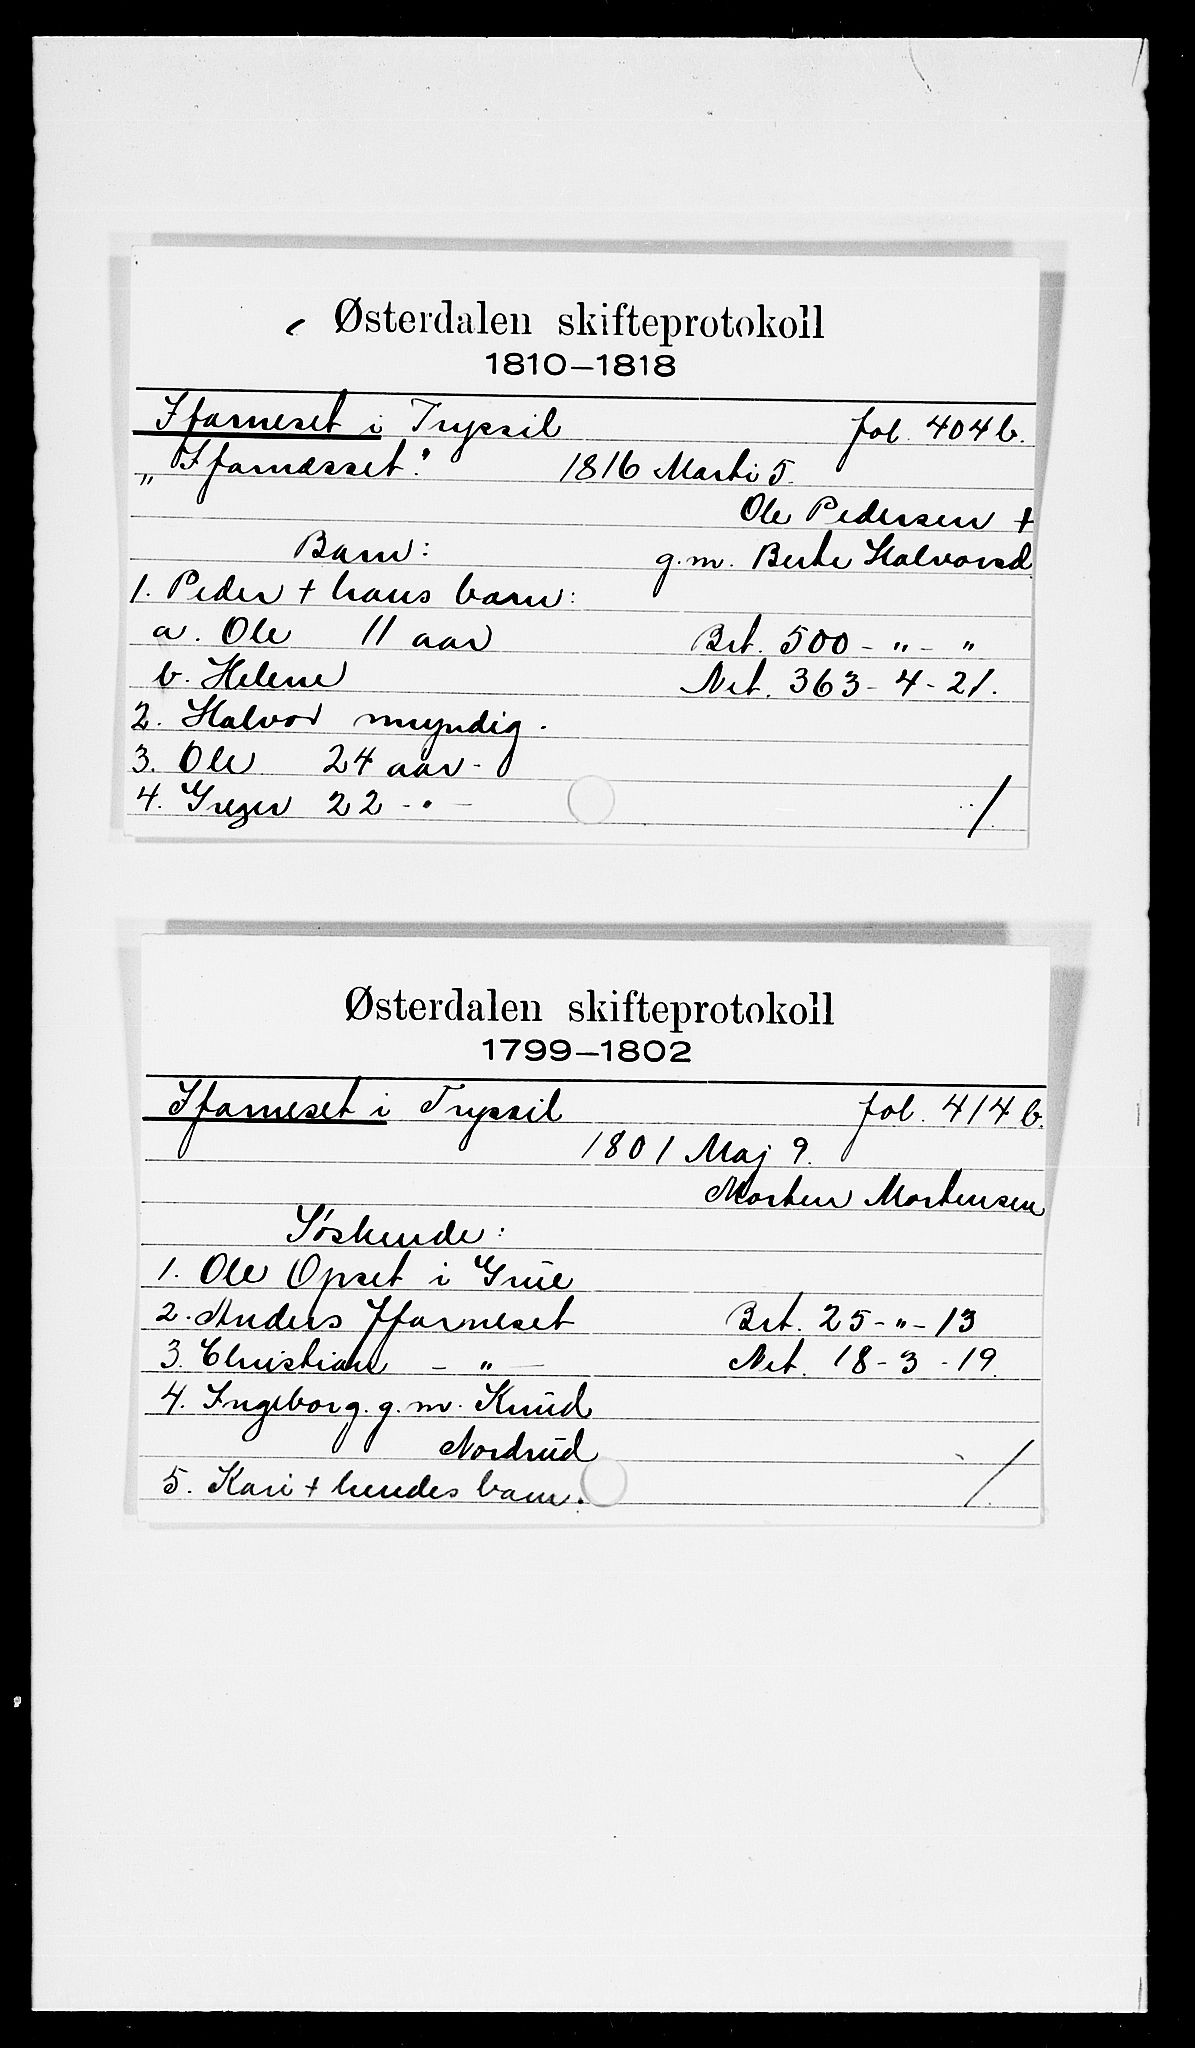 Østerdalen skifteprotokoll
1810–1818
Ifarneset i Trysil fol. 404 b.
„Ifarnæsset." 1816 Marti 5.
Ole Pedersen +
Barn: g.m. Berte Halvorsd.
1. Peder + hans barn:
a. Ole 11 aar Brt. 500 - " - "
b. Helene Net. 363 - 4 - 21.
2. Halvor myndig.
3. Ole 24 aar -
4. Greger 22 - " - /.
Østerdalen skifteprotokoll
1799–1802
Ifarneset i Tryssil fol. 414 b.
1801 Maj 9.
Morten Mortensen
Søskende:
1. Ole Opset i Grue
2. Anders Ifarneset Brt. 25 - " - 13
3. Christian - " - Net. 18 - 3 - 19.
4. Ingeborg g. m. Knud
Nordrud
5. Kari + hendes barn. /.